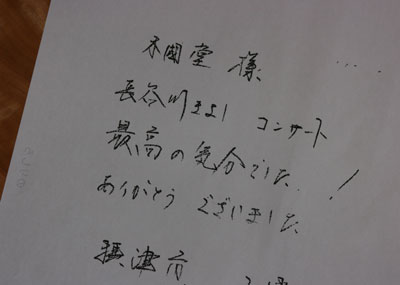 木國堂 様
長谷川きよし コンサート
最高の気分でした !
ありがとう ございました
摂津市